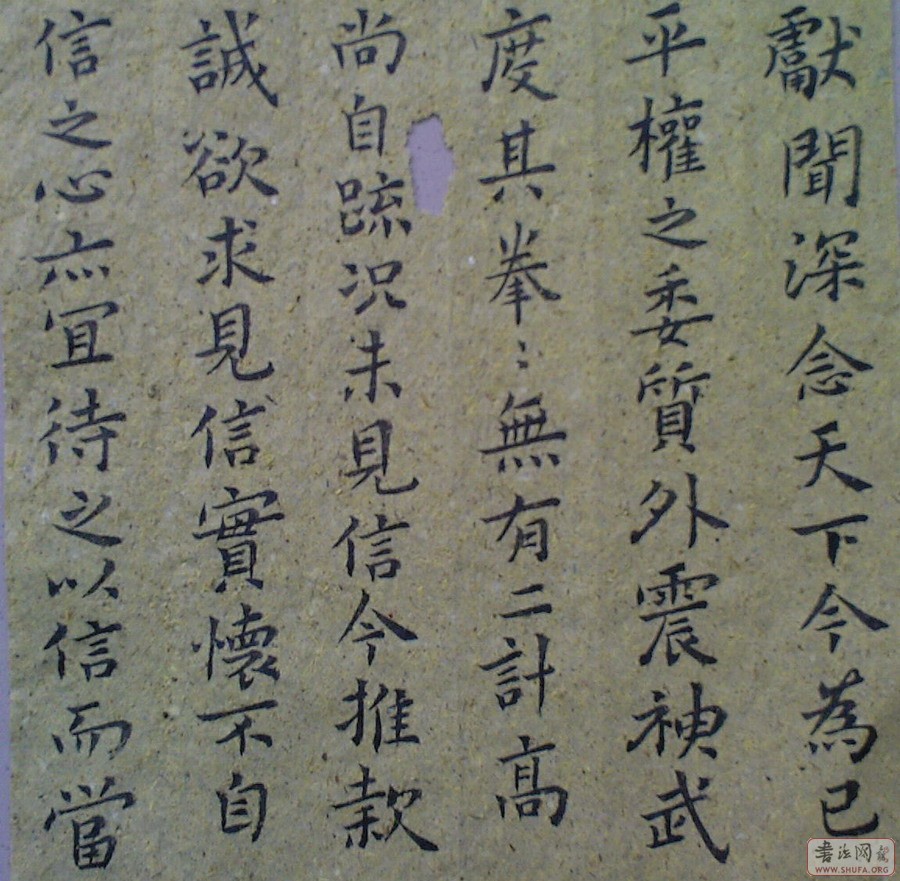 獻聞深念天下今為已
平權之委質外震神武
度其拳〻無有二計高
尚自疏況未見信今推款
誠欲求見信實懷不自
信之心亦宜待之以信而當
書法网
WWW.SHUFA.ORG